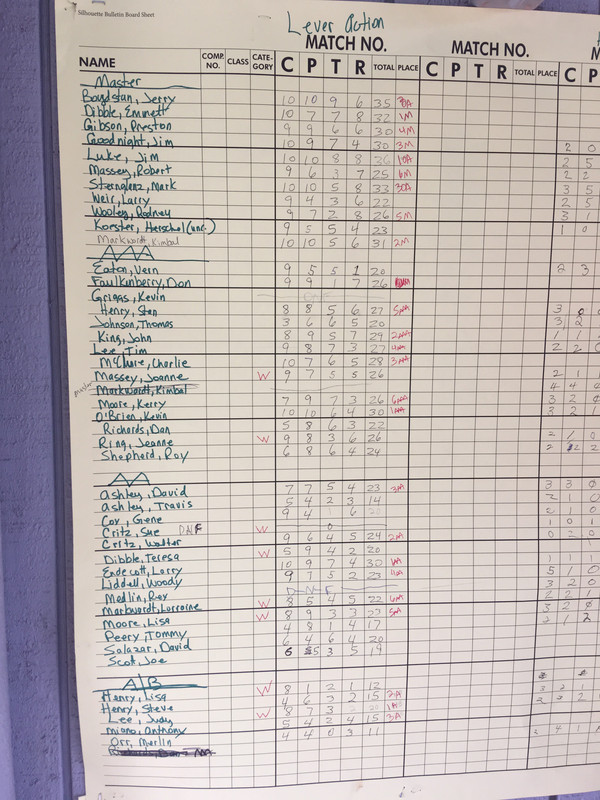 Silhouette Bulletin Board Sheet
Lever action
MATCH NO. MATCH NO. M
NAME COMP. NO. CLASS CATE-GORY C P T R TOTAL PLACE C P T R TOTAL PLACE C P
Master
Boydstan, Jerry 10 10 9 6 35
Dibble, Emmett 10 7 7 8 32 1M
Gibson, Preston 9 9 6 6 30 4M
Goodnight, Jim 10 9 7 4 30 3M 2 0
Luke, Jim 10 10 8 8 36 2 5
Massey, Robert 9 6 3 7 25 6M 2 2
10 10 5 8 33 3 5
Weir, Larry 9 4 3 6 22 2 5
Wooley, Rodney 9 7 2 8 26 5M 3 1
Koester, Herschel (unc.) 9 5 5 4 23 1 0
Markwardt, Kimbal 10 10 5 6 31 2M
AAA
Eaton, Vern 9 5 5 1 20 2 3
Faulkenberry, Don 9 9 1 7 26
Griggs, Kevin DNF
Henry, Stan 8 8 5 6 27 5AAA 3 0
Johnson, Thomas 3 6 6 5 20 3 2
King, John 8 9 5 7 29 2AAA 1 1
Lee, Tim 9 8 7 3 27 4AAA 2 2 0
McClure, Charlie 10 7 6 5 28 3AAA
Massey, Joanne W 9 7 5 5 26 2 1 1
master Markwardt, Kimbal 4 4
Moore, Kerry 7 9 7 3 26 6AAA 3 2 0
O'Brien, Kevin 10 10 6 4 30 1AAA 3 2 1
Richards, Dan 5 8 6 3 22
Ring, Jeanne W 9 8 3 6 26 2 1 0
Shepherd, Roy 6 8 6 4 24 2 2 2
AA
Ashley, David 7 7 5 4 23 3 3 0
Ashley, Travis 5 4 2 3 14 2 1 0
Cox, Gene 9 4 1 6 1 0
Critz, Sue DNF W 0 1 0 1
Critz, Walter 9 6 4 5 24 0 0
Dibble, Teresa W 5 9 4 2 20
Endecott, Larry 10 9 7 4 30 1 1
Liddell, Woody 9 7 5 2 23 5 1 0
Medlin, Roy DNF 3 2 0
Markwardt, Lorraine W 8 5 4 5 22 2 2 1
Moore, Lisa W 8 9 3 3 3 2 0
Peery, Tommy 4 8 1 4 17 2 1 2
Salazar, David 6 4 6 4 20
Scot, Joe 6 5 3 5 19
A/B
Henry, Lisa W 8 1 2 1 12
Henry, Steve 4 6 3 2 15 2A
Lee, Judy W 8 7 3 1A
Miano, Anthony 5 4 2 4 15 3A
Orr, Merlin 4 4 0 3 11 2 4 1